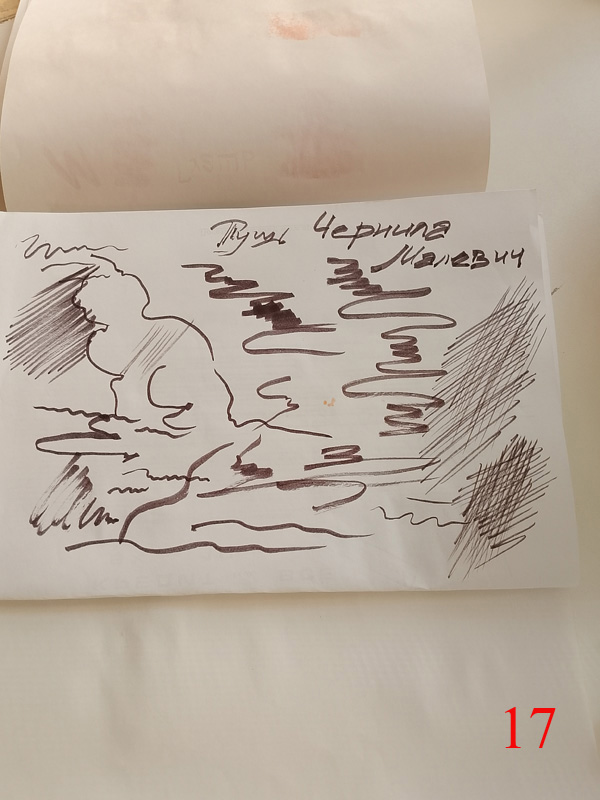 Тушь Чернила
Малевич
17